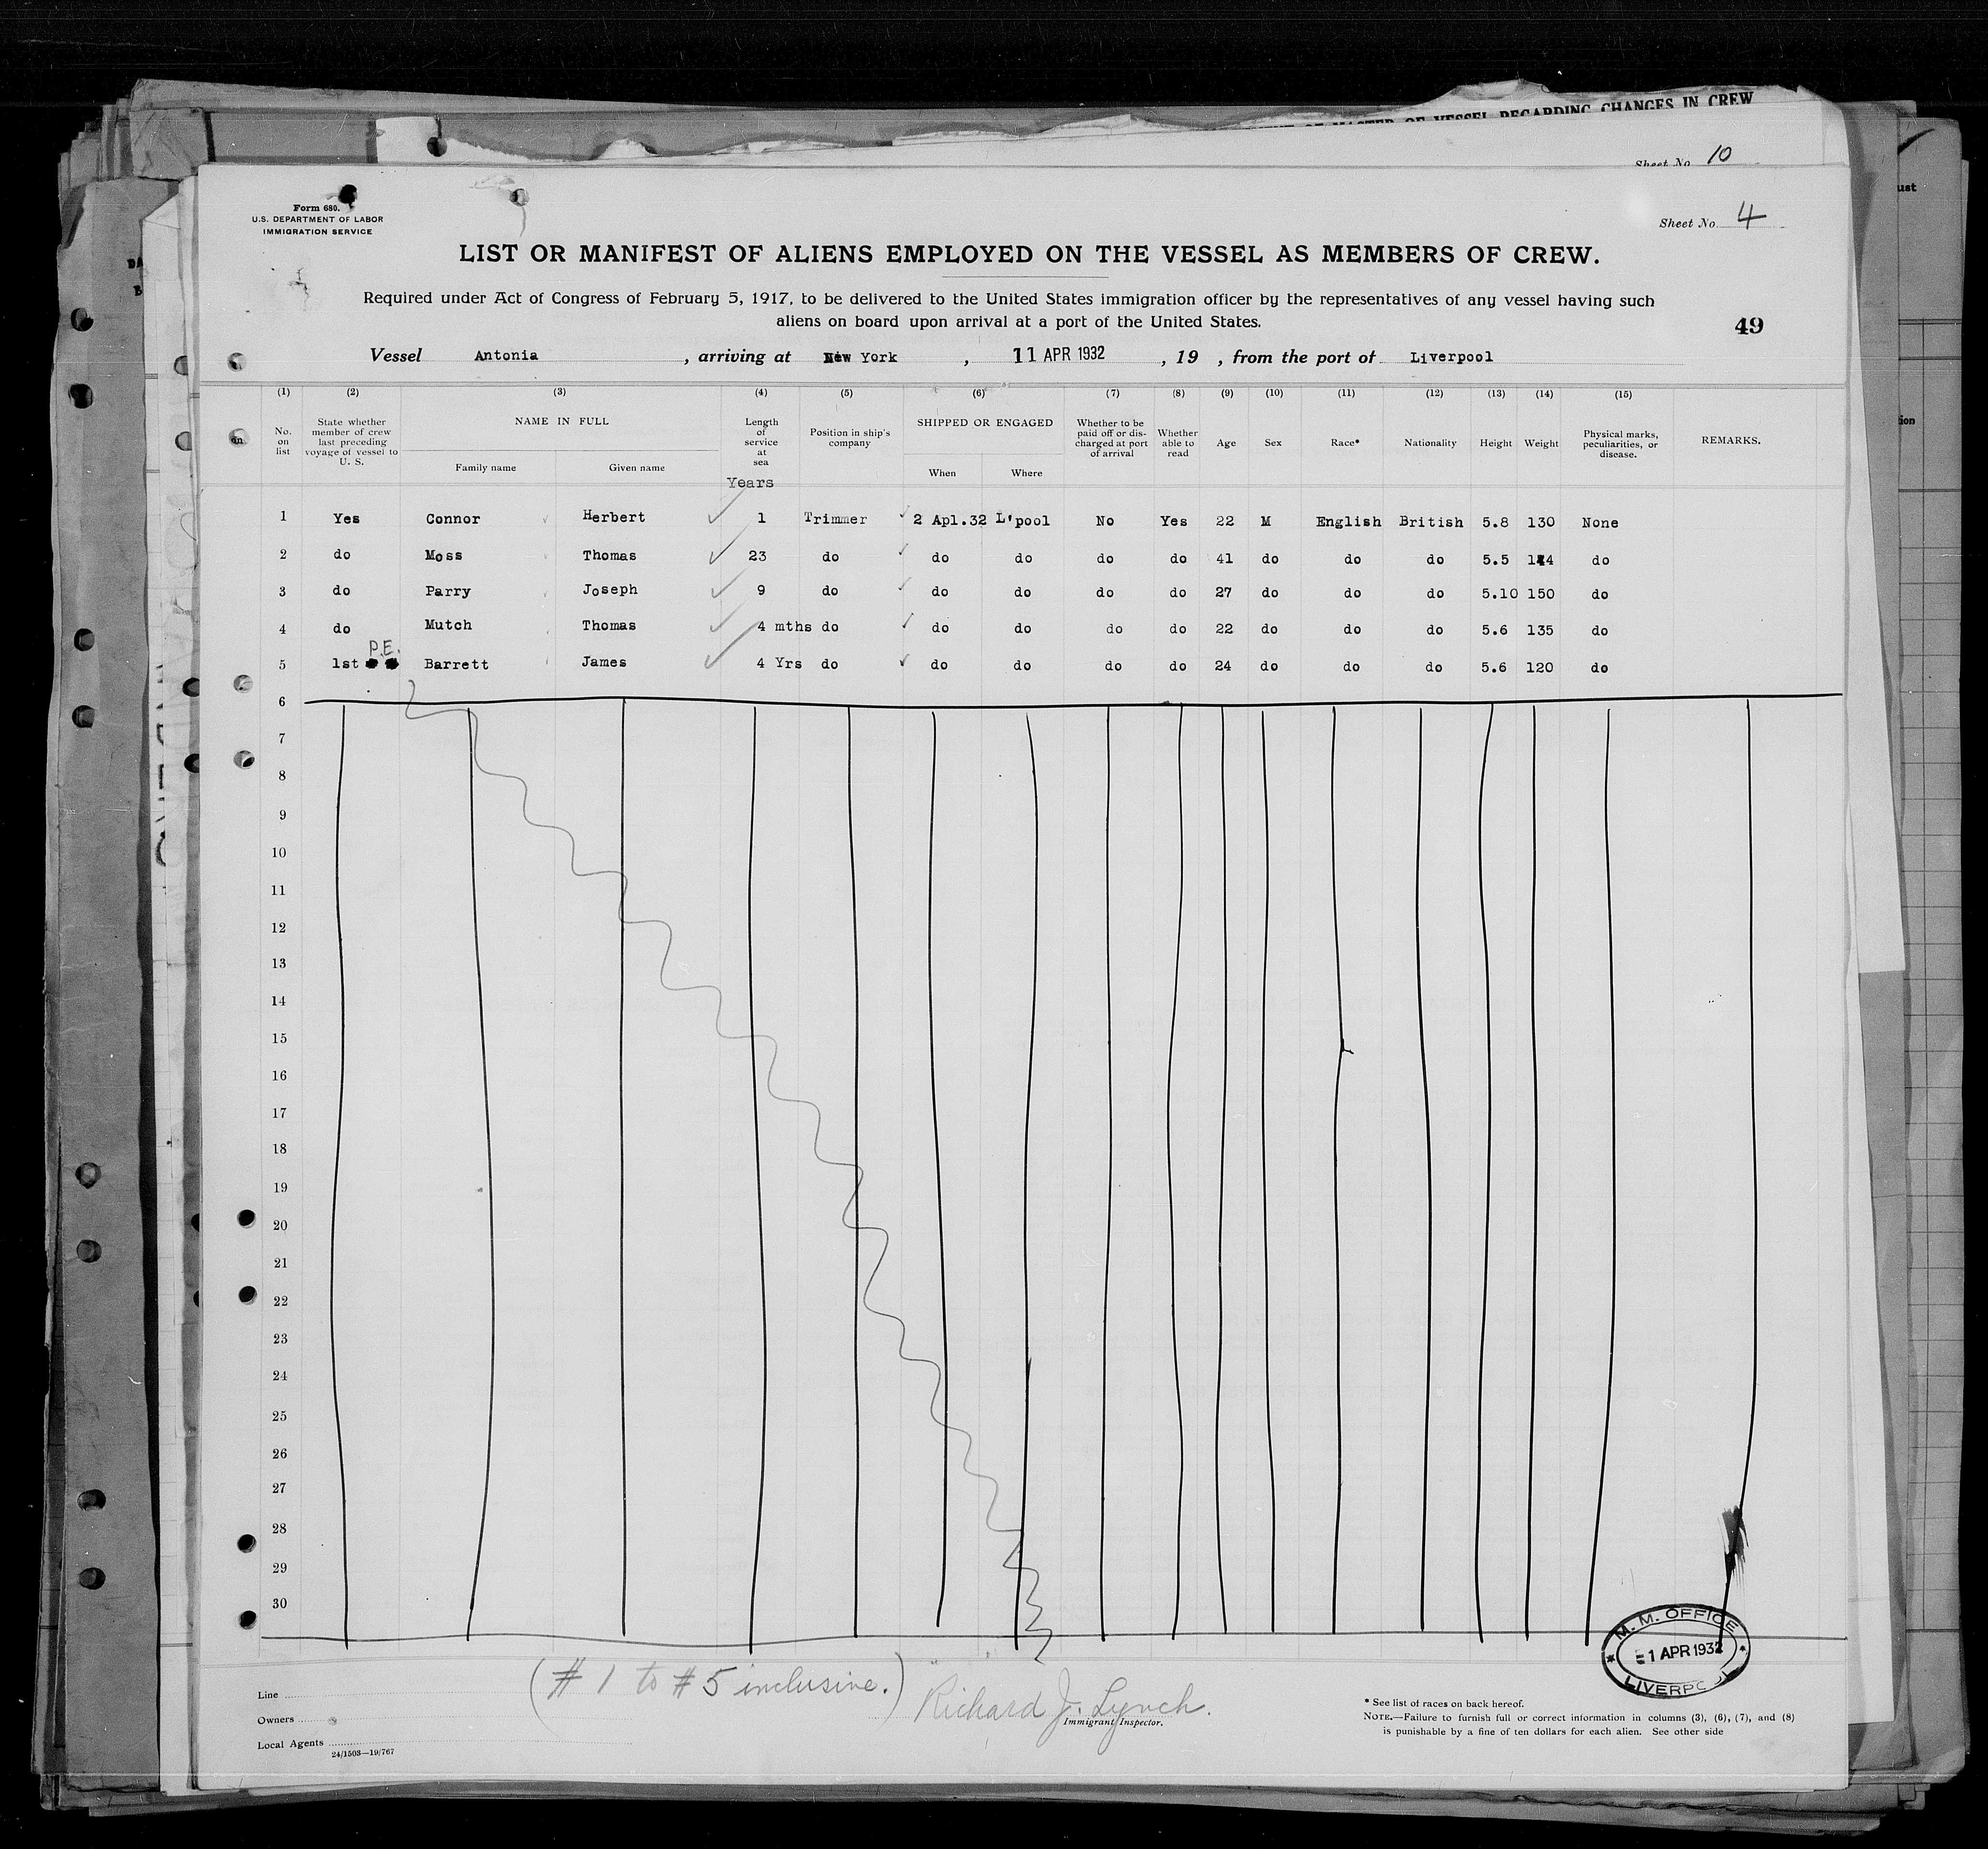 CHANGES IN CREW
OF MASTER OF VESSEL REGARDING
Sheet No 10
Form 680.
U.S. DEPARTMENT OF LABOR
IMMIGRATION SERVICE
Sheet No. 4
LIST OR MANIFEST OF ALIENS EMPLOYED ON THE VESSEL AS MEMBERS OF CREW.
Required under Act of Congress of February 5, 1917, to be delivered to the United States immigration officer by the representatives of any vessel having such
aliens on board upon arrival at a port of the United States.
49
Vessel Antonia , arriving at New York , 11 APR 1932 , 19 , from the port of Liverpool
(1) (2) (3) (4) (5) (6) (7) (8) (9) (10) (11) (12) (13) (14) (15)
No. on list
State whether member of crew last preceding voyage of vessel to U. S.
NAME IN FULL
Family name
Given name
Length of service at sea
Years
Position in ship's company
SHIPPED OR ENGAGED
When
Where
Whether to be paid off or discharged at port of arrival
Whether able to read
Age
Sex
Race*
Nationality
Height
Weight
Physical marks, peculiarities, or disease.
REMARKS.
1 Yes Connor Herbert 1 Trimmer 2 Apl.32 L'pool No Yes 22 M English British 5.8 130 None
2 do Moss Thomas 23 do do do do do 41 do do do 5.5 144 do
3 do Parry Joseph 9 do do do do do 27 do do do 5.10 150 do
4 do Mutch Thomas 4 mths do do do do do 22 do do do 5.6 135 do
P.E.
5 1st Barrett James 4 Yrs do do do do do 24 do do do 5.6 120 do
6
7
8
9
10
11
12
13
14
15
16
17
18
19
20
21
22
23
24
25
26
27
28
29
30
M. M. OFFICE
1 APR 1932
LIVERPOOL
(# 1 to # 5 inclusive.) Richard J. Lynch.
Immigrant Inspector.
Line
Owners
Local Agents
24/1503—19/767
* See list of races on back hereof.
NOTE.—Failure to furnish full or correct information in columns (3), (6), (7), and (8)
is punishable by a fine of ten dollars for each alien. See other side